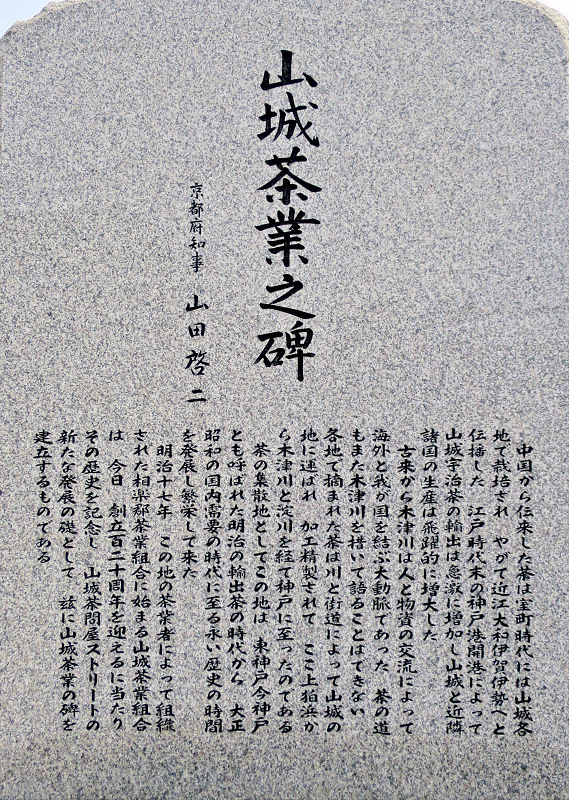 山城茶業之碑
京都府知事 山田啓二
中国から伝来した茶は室町時代には山城各
地で栽培され やがて近江大和伊賀伊勢へと
伝播した 江戸時代末の神戸港開港によって
山城宇治茶の輸出は急激に増加し山城と近隣
諸国の生産は飛躍的に増大した
古来から木津川は人と物資の交流によって
海外と我が国を結ぶ大動脈であった 茶の道
もまた木津川を措いて語ることはできない
各地で摘まれた茶は川と街道によって山城の
地に運ばれ 加工精製されて ここ上狛浜か
ら木津川と淀川を経て神戸に至ったのである
茶の集散地としてこの地は 東神戸今神戸
とも呼ばれた明治の輸出茶の時代から 大正
昭和の国内需要の時代に至る永い歴史の時間
を発展し繁栄して来た
明治十七年 この地の茶業者によって組織
された相楽郡茶業組合に始まる山城茶業組合
は 今日 創立百二十周年を迎えるに当たり
その歴史を記念し 山城茶問屋ストリートの
新たな発展の礎として 茲に山城茶業の碑を
建立するものである